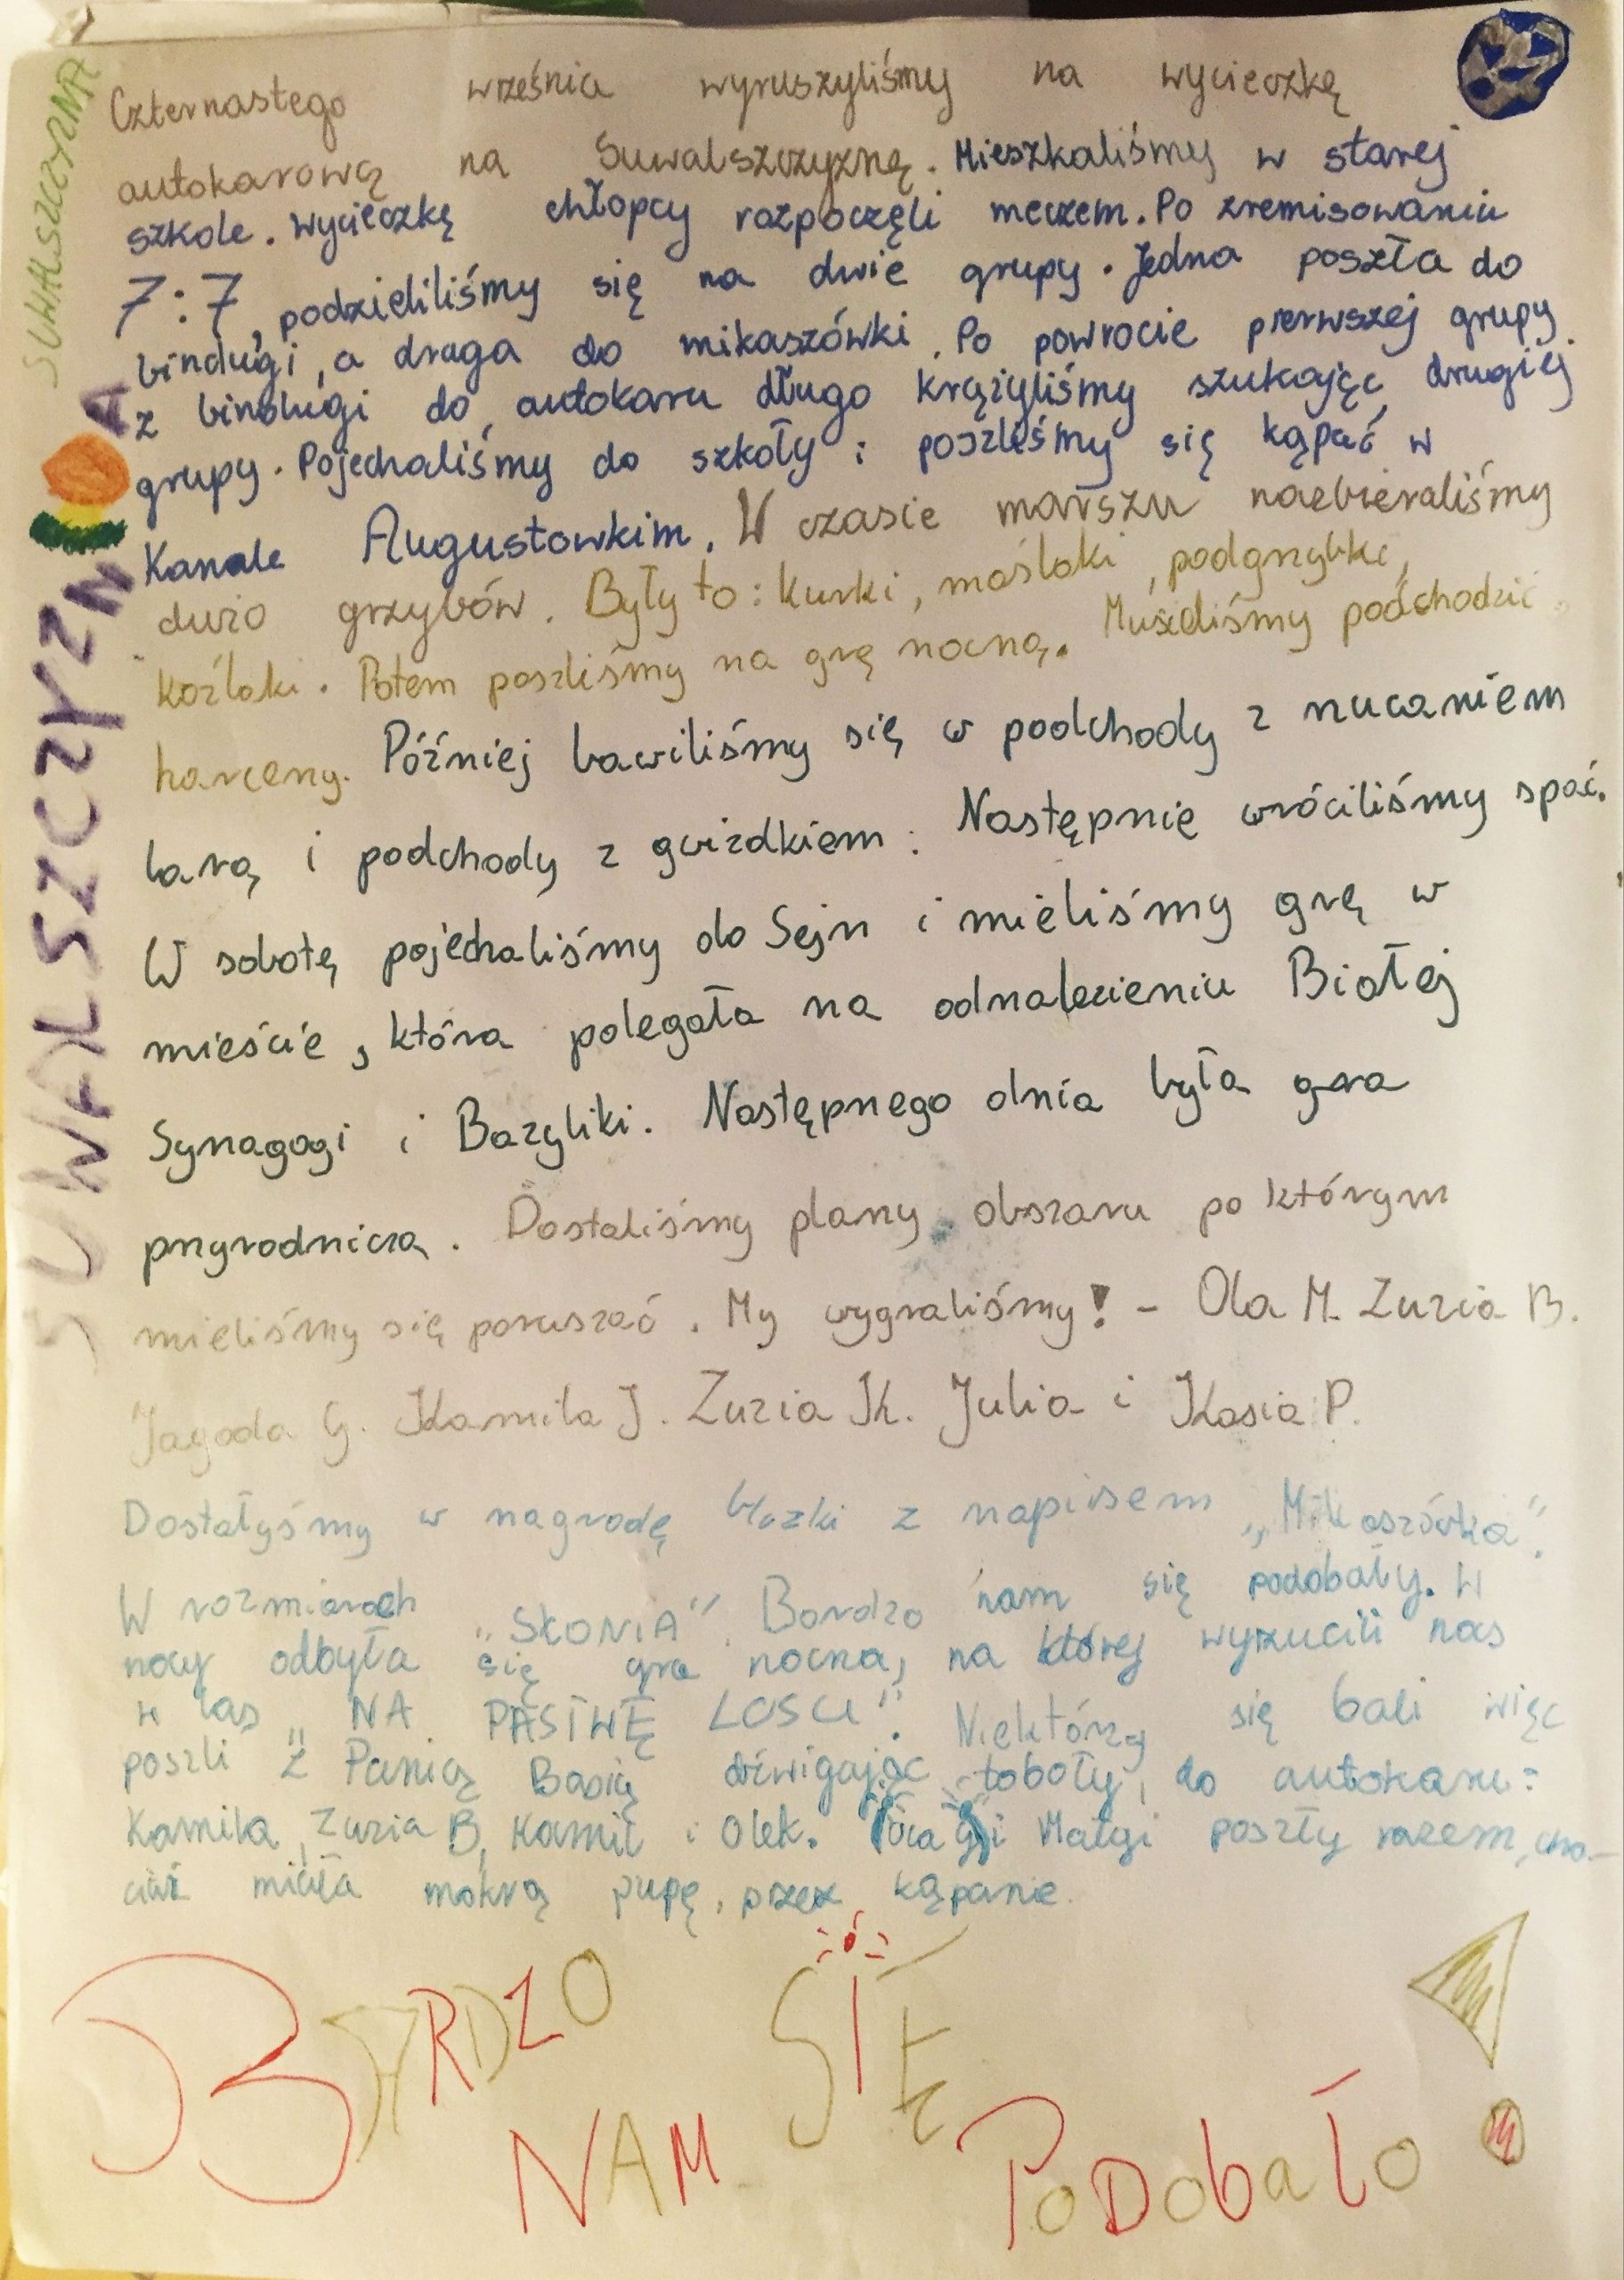 SUWALSZCZYZNA
SUWALSZCZYZNA
Czternastego września wyruszyliśmy na wycieczkę
autokarową na Suwalszczyznę. Mieszkaliśmy w starej
szkole. Wycieczkę chłopcy rozpoczęli meczem. Po zremisowaniu
7:7, podzieliliśmy się na dwie grupy. Jedna poszła do
bindugi, a druga do mikaszówki. Po powrocie pierwszej grupy
z bindugi do autokaru długo krążyliśmy szukając drugiej
grupy. Pojechaliśmy do szkoły i poszliśmy się kąpać w
Kanale Augustowkim. W czasie marszu nazbieraliśmy
dużo grzybów. Były to: kurki, maślaki, podgrzybki,
koźlaki. Potem poszliśmy na grę nocną. Musieliśmy podchodzić
harcerzy. Później bawiliśmy się w podchody z rzucaniem
larą i podchody z gwizdkiem. Następnie wróciliśmy spać.
W sobotę pojechaliśmy do Sejn i mieliśmy grę w
mieście, która polegała na odnalezieniu Białej
Synagogi i Bazyliki. Następnego dnia była gra
przyrodnicza. Dostaliśmy plany obszaru po którym
mieliśmy się poruszać. My wygraliśmy! - Ola M. Zuzia B.
Jagoda G. Kamila J. Zuzia K. Julia i Kasia P.
Dostałyśmy w nagrodę bluzki z napisem „Mikaszówka".
W rozmiarach „SŁONIA". Bardzo nam się podobały. W
nocy odbyła się gra nocna, na której wyrzucili nas
w las „NA PASTWĘ LOSU". Niektórzy się bali więc
poszli z Panią Basią dźwigając toboły, do autokaru:
Kamila, Zuzia B, Kamil i Olek. i Małgi poszły razem, cho-
ciaż miała mokrą pupę, przez kąpanie.
BARDZO
NAM SIĘ
PODOBAŁO!